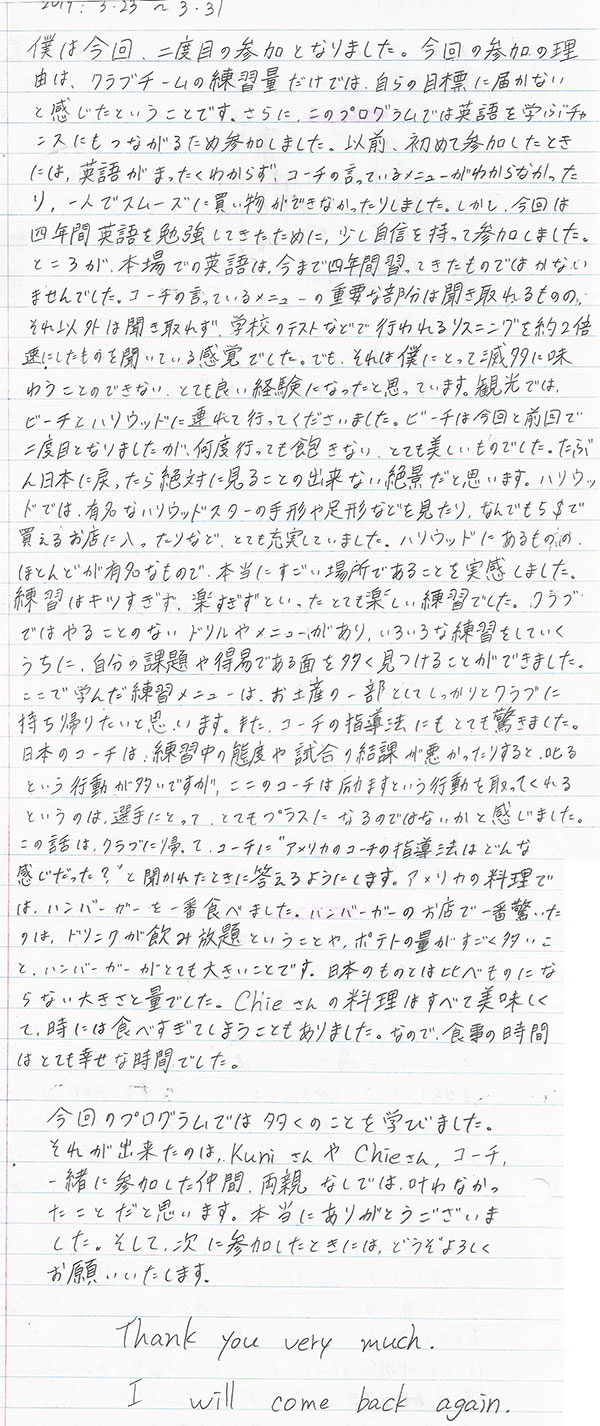 2017. 3.23 〜 3.31
僕は今回、二度目の参加となりました。今回の参加の理
由は、クラブチームの練習量だけでは、自らの目標に届かない
と感じたということです。さらに、このプログラムでは英語を学ぶチャ
ンスにもつながるため参加しました。以前、初めて参加したとき
には、英語がまったくわからず、コーチの言っているメニューがわからなかった
り、一人でスムーズに買い物ができなかったりしました。しかし、今回は
四年間英語を勉強してきたために、少し自信を持って参加しました。
ところが、本場での英語は、今まで四年間習ってきたものではかない
ませんでした。コーチの言っているメニューの重要な部分は聞き取れるものの、
それ以外は聞き取れず、学校のテストなどで行われるリスニングを約2倍
速にしたものを聞いている感覚でした。でも、それは僕にとって滅多に味
わうことのできない、とても良い経験になったと思っています。観光では、
ビーチとハリウッドに連れて行ってくださいました。ビーチは今回と前回で
二度目となりましたが、何度行っても飽きない、とても美しいものでした。たぶ
ん日本に戻ったら絶対に見ることの出来ない絶景だと思います。ハリウッ
ドでは、有名なハリウッドスターの手形や足形などを見たり、なんでも5$で
買えるお店に入ったりなど、とても充実していました。ハリウッドにあるものの、
ほとんどが有名なもので、本当にすごい場所であることを実感しました。
練習はキツすぎず、楽すぎずといったとても楽しい練習でした。クラブ
ではやることのないドリルやメニューがあり、いろいろな練習をしていく
うちに、自分の課題や得易である面を多く見つけることができました。
ここで学んだ練習メニューは、お土産の一部としてしっかりとクラブに
持ち帰りたいと思います。また、コーチの指導法にもとても驚きました。
日本のコーチは、練習中の態度や試合の結課が悪かったりすると、叱る
という行動が多いですが、ここのコーチは励ますという行動を取ってくれる
というのは、選手にとって、とてもプラスになるのではないかと感じました。
この話は、クラブに帰って、コーチに"アメリカのコーチの指導法はどんな
感じだった?"と聞かれたときに答えるようにします。アメリカの料理で
は、ハンバーガーを一番食べました。ハンバーガーのお店で一番驚いた
のは、ドリンクが飲み放題ということや、ポテトの量がすごく多いこ
と、ハンバーガーがとても大きいことです。日本のものとは比べものにな
らない大きさと量でした。Chieさんの料理はすべて美味しく
て、時には食べすぎてしまうこともありました。なので、食事の時間
はとても幸せな時間でした。
今回のプログラムでは多くのことを学びました。
それが出来たのは、KuniさんやChieさん、コーチ、
一緒に参加した仲間、両親なしでは、叶わなかっ
たことだと思います。本当にありがとうございま
した。そして、次に参加したときには、どうぞよろしく
お願いいたします。
Thank you very much.
I will come back again.